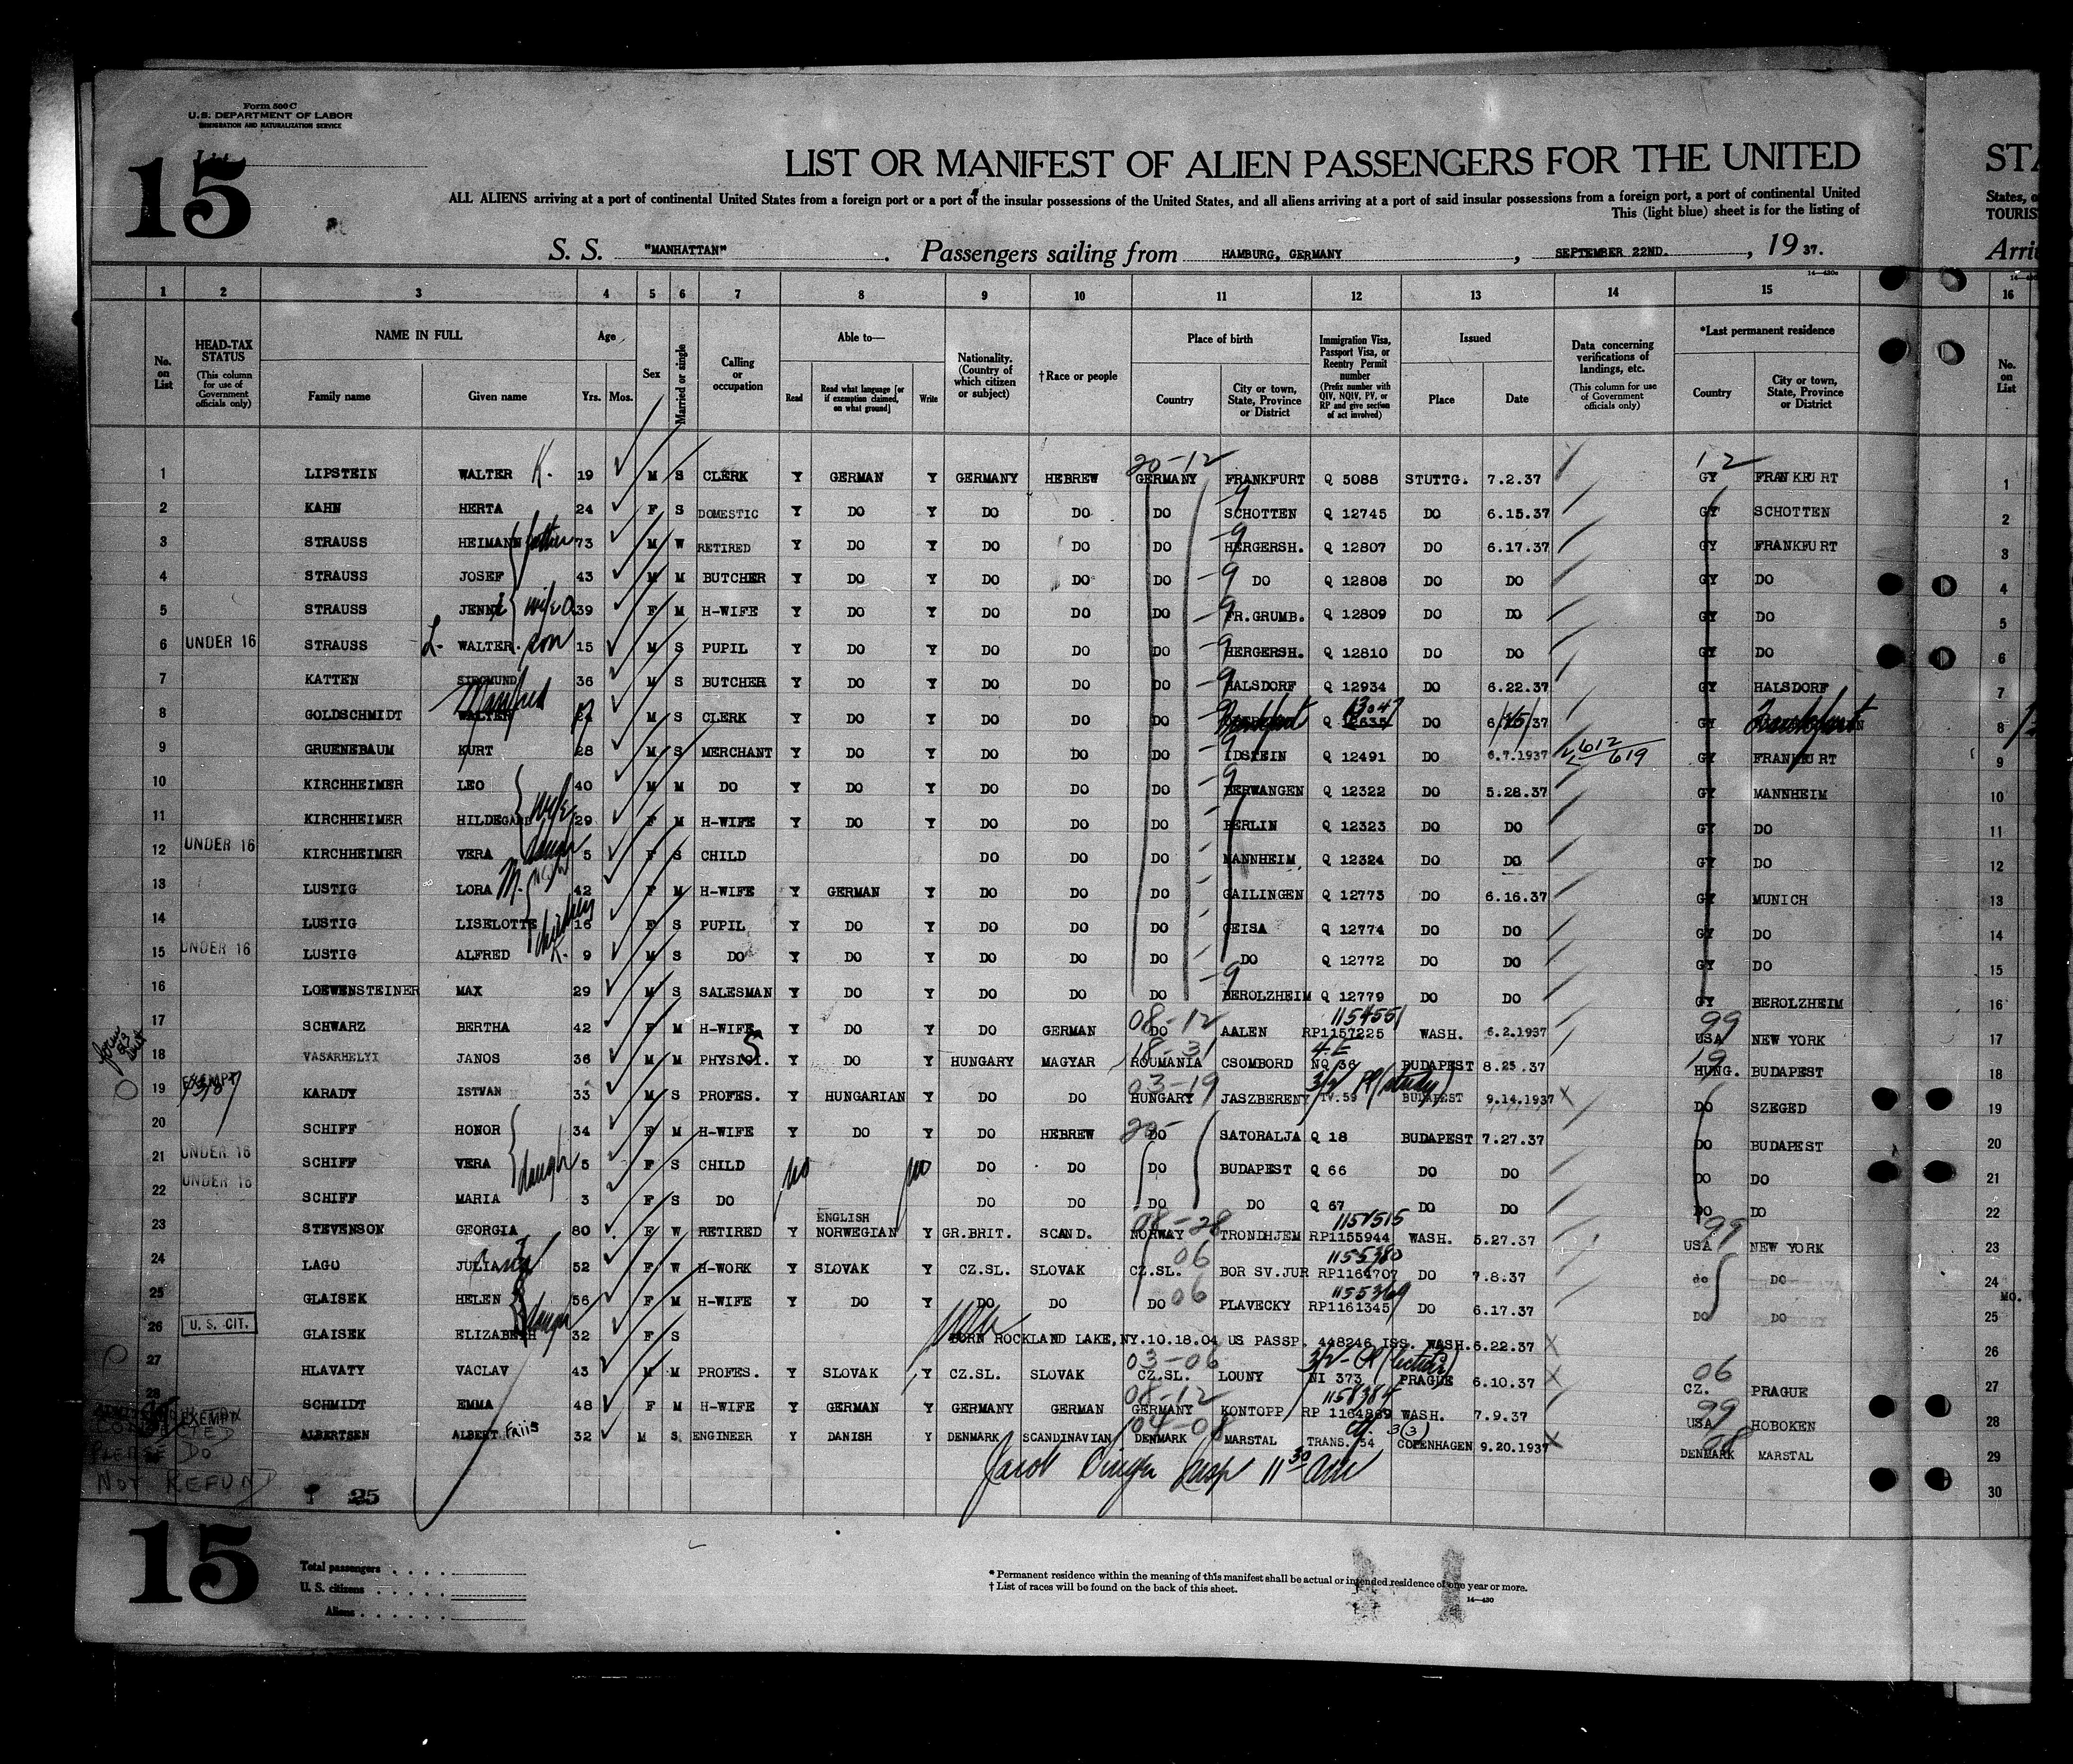 Form 500 C
U.S. DEPARTMENT OF LABOR
IMMIGRATION AND NATURALIZATION SERVICE
List
15
LIST OR MANIFEST OF ALIEN PASSENGERS FOR THE UNITED
STA
ALL ALIENS arriving at a port of continental United States from a foreign port or a port of the insular possessions of the United States, and all aliens arriving at a port of said insular possessions from a foreign port, a port of continental United
States, o
This (light blue) sheet is for the listing of
TOURIS
S. S. "MANHATTAN". Passengers sailing from HAMBURG, GERMANY, SEPTEMBER 22ND., 1937.
Arri
14—430a
1 2 3 4 5 6 7 8 9 10 11 12 13 14 15 16
No. on List
HEAD-TAX STATUS (This column for use of Government officials only)
NAME IN FULL
Family name Given name
Age
Yrs. Mos.
Sex
Married or single
Calling or occupation
Able to—
Read
Read what language [or if exemption claimed, on what ground]
Write
Nationality. (Country of which citizen or subject)
†Race or people
Place of birth
Country
City or town, State, Province or District
Immigration Visa, Passport Visa, or Reentry Permit number (Prefix number with QIV, NQIV, PV, or RP and give section of act involved)
Issued
Place Date
Data concerning verifications of landings, etc. (This column for use of Government officials only)
*Last permanent residence
Country
City or town, State, Province or District
No. on List
20-12 12
1 LIPSTEIN WALTER K. 19 M S CLERK Y GERMAN Y GERMANY HEBREW GERMANY FRANKFURT Q 5088 STUTTG. 7.2.37 GY FRANKFURT 1
2 KAHN HERTA 24 F S DOMESTIC Y DO Y DO DO DO SCHOTTEN Q 12745 DO 6.15.37 GY SCHOTTEN 2
3 STRAUSS HEIMANN father 73 M W RETIRED Y DO Y DO DO DO HERGERSH. Q 12807 DO 6.17.37 GY FRANKFURT 3
4 STRAUSS JOSEF 43 M M BUTCHER Y DO Y DO DO DO DO Q 12808 DO DO GY DO 4
5 STRAUSS JENNY wife 39 F M H-WIFE Y DO Y DO DO DO FR.GRUMB. Q 12809 DO DO GY DO 5
6 UNDER 16 STRAUSS L. WALTER son 15 M S PUPIL Y DO Y DO DO DO HERGERSH. Q 12810 DO DO GY DO 6
7 KATTEN SIEGMUND 36 M S BUTCHER Y DO Y DO DO DO HALSDORF Q 12934 DO 6.22.37 GY HALSDORF 7
8 GOLDSCHMIDT WALTER Manfred M S CLERK Y DO Y DO DO DO Frankfurt Q 12635 13047 DO 6/25/37 GY Frankfurt 8
9 GRUENEBAUM KURT 28 M S MERCHANT Y DO Y DO DO DO IDSTEIN Q 12491 DO 6.7.1937 612 619 GY FRANKFURT 9
10 KIRCHHEIMER LEO 40 M M DO Y DO Y DO DO DO BERWANGEN Q 12322 DO 5.28.37 GY MANNHEIM 10
11 KIRCHHEIMER HILDEGARD wife 29 F M H-WIFE Y DO Y DO DO DO BERLIN Q 12323 DO DO GY DO 11
12 UNDER 16 KIRCHHEIMER VERA daugh 5 F S CHILD DO DO DO MANNHEIM Q 12324 DO DO GY DO 12
13 LUSTIG LORA M. 42 F M H-WIFE Y GERMAN Y DO DO DO GAILINGEN Q 12773 DO 6.16.37 GY MUNICH 13
14 LUSTIG LISELOTTE children 16 F S PUPIL Y DO Y DO DO DO GEISA Q 12774 DO DO GY DO 14
15 UNDER 16 LUSTIG ALFRED K. 9 M S DO Y DO Y DO DO DO DO Q 12772 DO DO GY DO 15
16 LOEWENSTEINER MAX 29 M S SALESMAN Y DO Y DO DO DO BEROLZHEIM Q 12779 DO DO GY BEROLZHEIM 16
08-12 1154551 99
17 SCHWARZ BERTHA 42 F M H-WIFE Y DO Y DO GERMAN DO AALEN RP1157225 WASH. 6.2.1937 USA NEW YORK 17
18-31 4-E 19
18 VASARHELYI JANOS 36 M M PHYSICI. Y DO Y HUNGARY MAGYAR ROUMANIA CSOMBORD NQ 36 BUDAPEST 8.25.37 HUNG. BUDAPEST 18
03-19 3/2 PV(study)
19 EXEMPT KARADY ISTVAN 33 M S PROFES. Y HUNGARIAN Y DO DO HUNGARY JASZBERENY TV.59 BUDAPEST 9.14.1937 X DO SZEGED 19
20 SCHIFF HONOR 34 F M H-WIFE Y DO Y DO HEBREW 20- DO SATORALJA Q 18 BUDAPEST 7.27.37 DO BUDAPEST 20
21 UNDER 16 SCHIFF VERA daugh 5 F S CHILD no no DO DO DO BUDAPEST Q 66 DO DO DO DO 21
22 UNDER 16 SCHIFF MARIA 3 F S DO DO DO DO DO Q 67 DO DO DO DO 22
08-28 1157515 99
23 STEVENSON GEORGIA 80 F W RETIRED Y ENGLISH NORWEGIAN Y GR.BRIT. SCAND. NORWAY TRONDHJEM RP1155944 WASH. 5.27.37 USA NEW YORK 23
06 1155380
24 LAGO JULIA 52 F W H-WORK Y SLOVAK Y CZ.SL. SLOVAK CZ.SL. BOR SV.JUR RP1164707 DO 7.8.37 do DO 24
06 1155369 MO.
25 GLAISEK HELEN 56 F M H-WIFE Y DO Y DO DO DO PLAVECKY RP1161345 DO 6.17.37 DO DO 25
26 U. S. CIT. GLAISEK ELIZABETH daugh 32 F S BORN ROCKLAND LAKE,NY.10.18.04 US PASSP. 448246 ISS. WASH.6.22.37 X 26
03-06 3/2- PV(lecture) 06
27 HLAVATY VACLAV 43 M M PROFES. Y SLOVAK Y CZ.SL. SLOVAK CZ.SL. LOUNY NI 373 PRAGUE 6.10.37 X CZ. PRAGUE 27
08-12 1158384 99
28 SCHMIDT EMMA 48 F M H-WIFE Y GERMAN Y GERMANY GERMAN GERMANY KONTOPP RP 1164869 WASH. 7.9.37 USA HOBOKEN 28
EXEMPT 04-08 3(3) 08
ALBERTSEN ALBERT Friis 32 M S ENGINEER Y DANISH Y DENMARK SCANDINAVIAN DENMARK MARSTAL TRANS. 54 COPENHAGEN 9.20.1937 X DENMARK MARSTAL 29
COLLECTED
PLEASE DO
NOT REFUND
Jacob Insp 11 30 AM
30
25
15
Total passengers
U. S. citizens
Aliens
* Permanent residence within the meaning of this manifest shall be actual or intended residence of one year or more.
† List of races will be found on the back of this sheet.
14—430